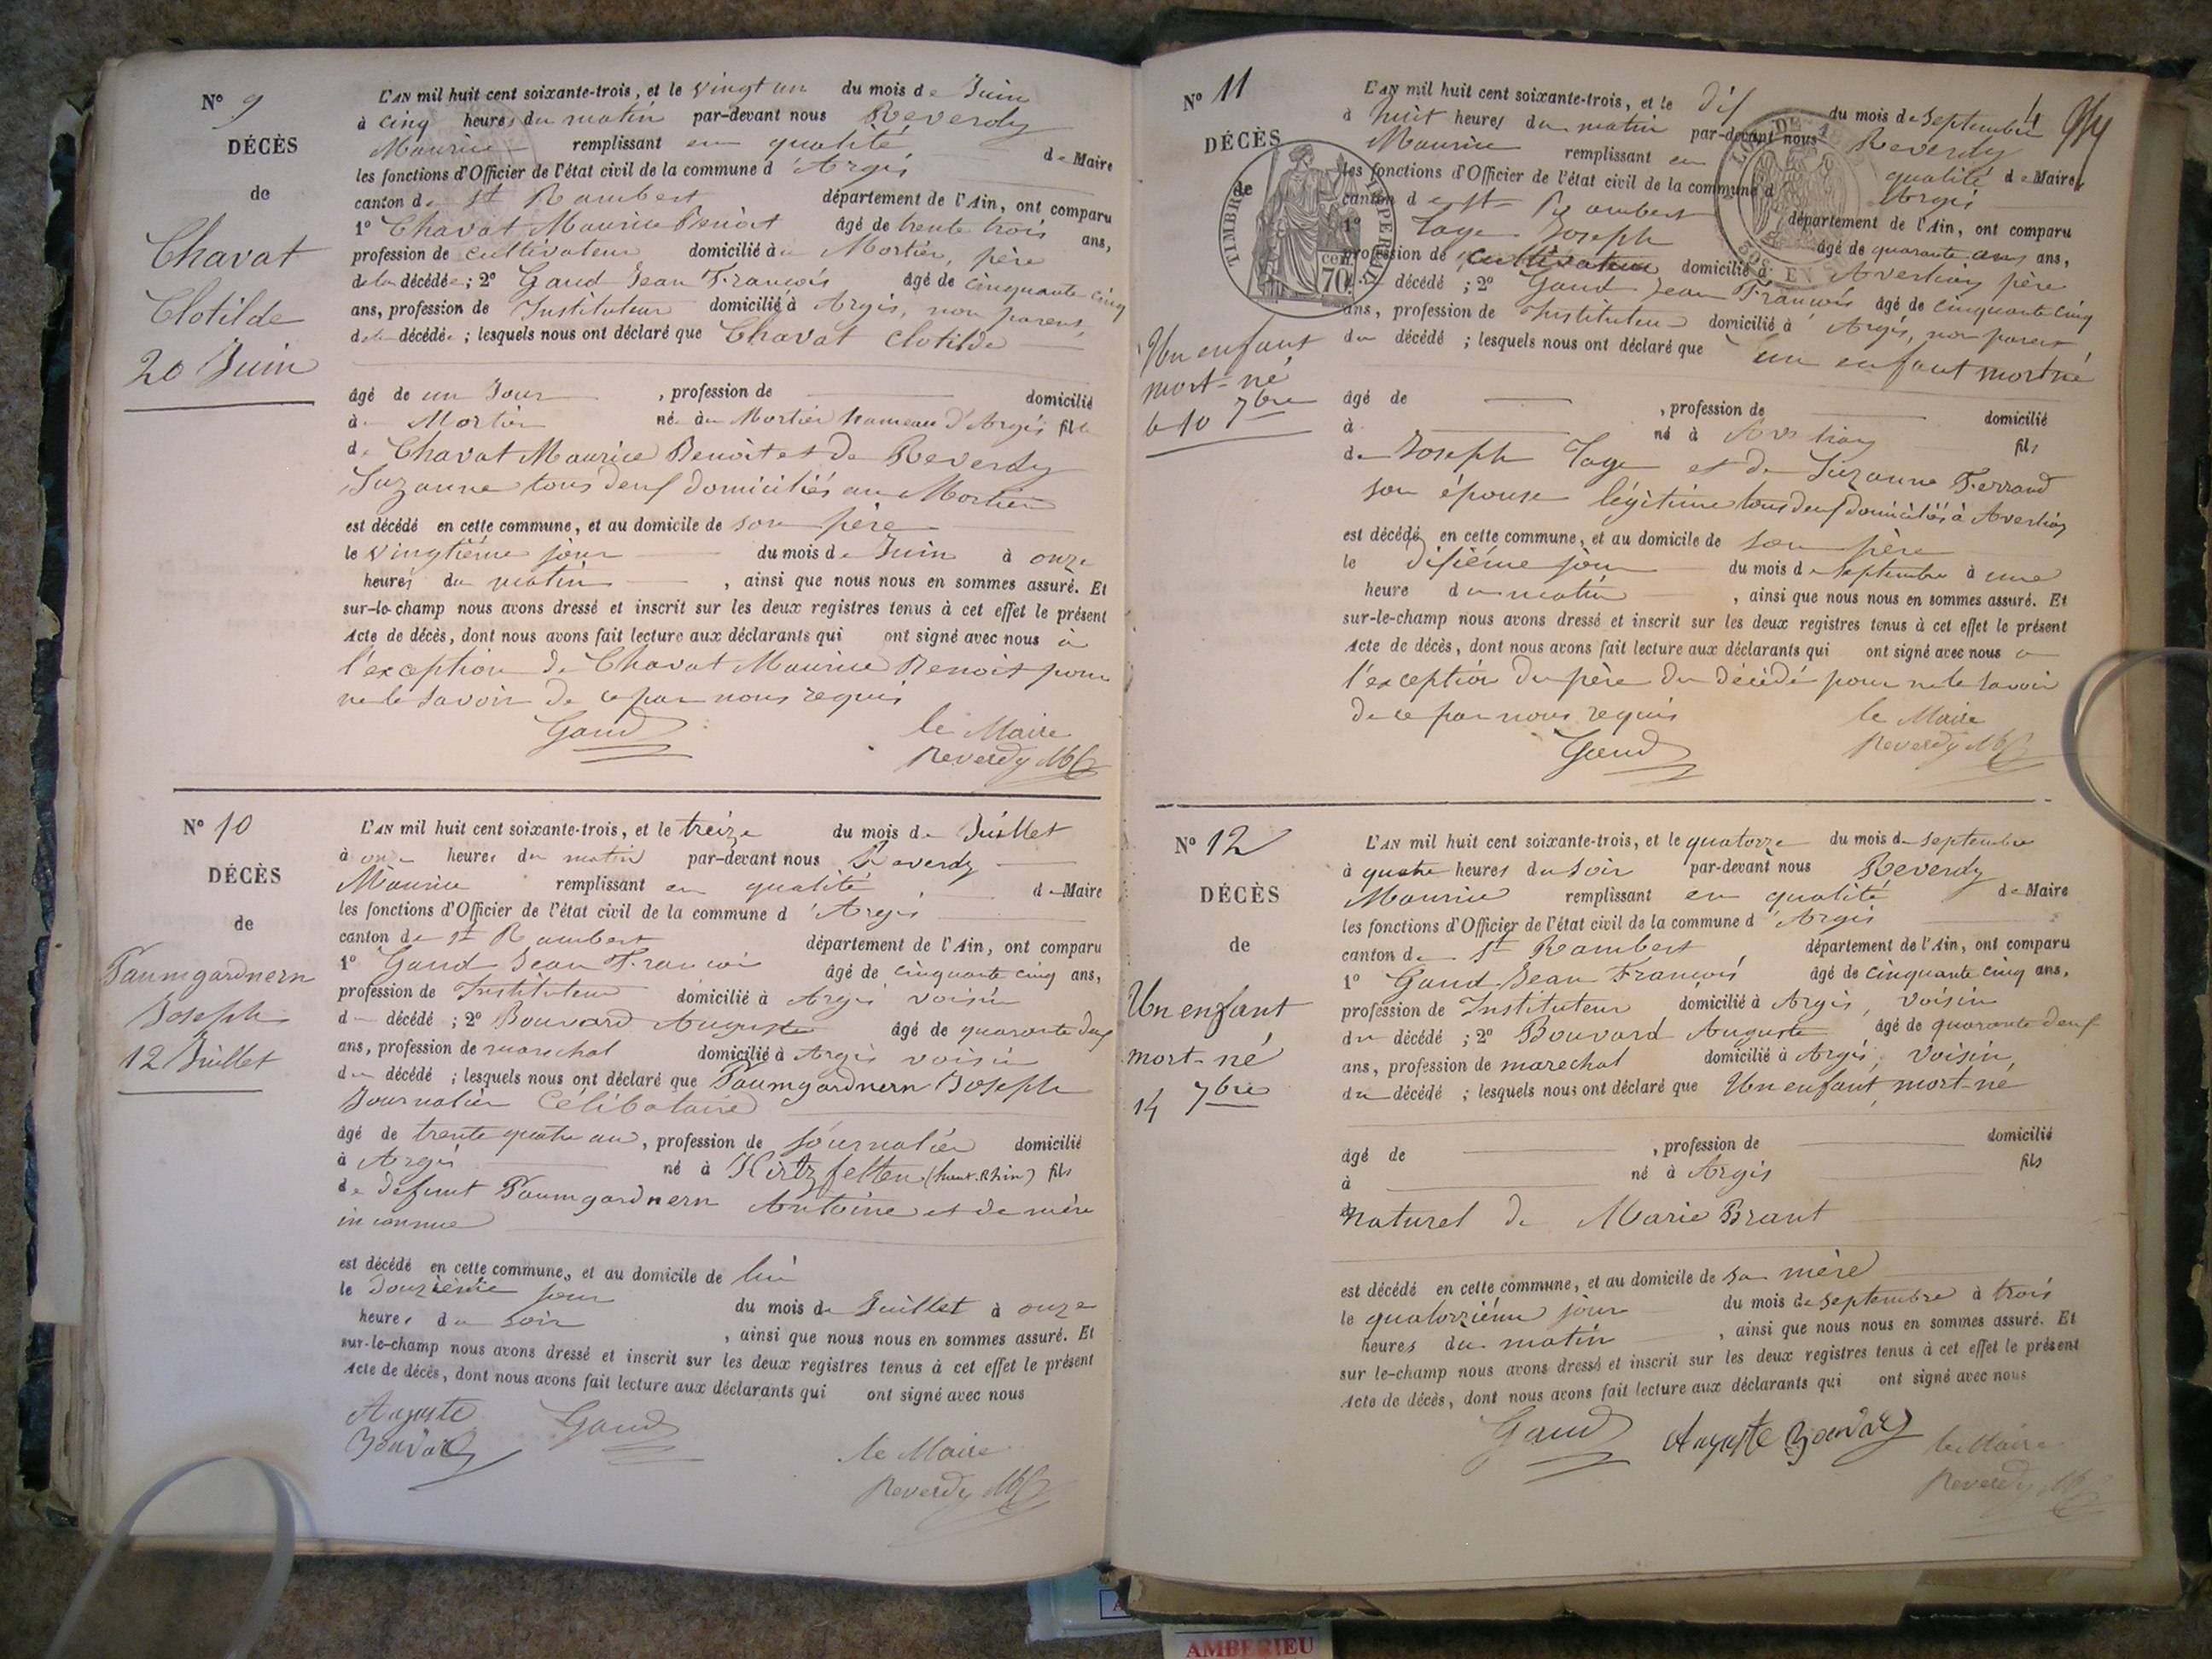 N° 9
DÉCÈS
de
Chavat
Clotilde
20 Juin
L'AN mil huit cent soixante-trois, et le vingt un du mois de Juin
à cinq heures du matin par-devant nous Reverdy
Maurice remplissant en qualité de Maire
les fonctions d'Officier de l'état civil de la commune d'Argis
canton de St Rambert département de l'Ain, ont comparu
1° Chavat Maurice Benoit âgé de trente trois ans,
profession de cultivateur domicilié au Mortier, père
de la décédée ; 2° Gaud Jean François âgé de cinquante cinq
ans, profession de Instituteur domicilié à Argis, non parent,
de la décédée ; lesquels nous ont déclaré que Chavat Clotilde
âgé de un Jour , profession de domicilié
au Mortier né au Mortier hameau d'Argis fille
de Chavat Maurice Benoit et de Reverdy
Suzanne tous deux domiciliés au Mortier
est décédé en cette commune, et au domicile de son père
le vingtième jour du mois de Juin à onze
heures du matin , ainsi que nous nous en sommes assuré. Et
sur-le-champ nous avons dressé et inscrit sur les deux registres tenus à cet effet le présent
Acte de décès, dont nous avons fait lecture aux déclarants qui ont signé avec nous à
l'exception de Chavat Maurice Benoit pour
ne le savoir de ce par nous requis
Gaud le Maire
Reverdy
N° 10
DÉCÈS
de
Paumgardnern
Joseph
12 Juillet
L'AN mil huit cent soixante-trois, et le treize du mois de Juillet
à onze heures du matin par-devant nous Reverdy
Maurice remplissant en qualité de Maire
les fonctions d'Officier de l'état civil de la commune d'Argis
canton de St Rambert département de l'Ain, ont comparu
1° Gaud Jean François âgé de cinquante cinq ans,
profession de Instituteur domicilié à Argis voisin
du décédé ; 2° Bouvard Auguste âgé de quarante deux
ans, profession de marechal domicilié à Argis voisin
du décédé ; lesquels nous ont déclaré que Paumgardnern Joseph
Journalier Célibataire
âgé de trente quatre ans, profession de journalier domicilié
à Argis né à Hirtzfelten (haut-Rhin) fils
de défunt Paumgardnern Antoine et de mère
inconnue
est décédé en cette commune, et au domicile de lui
le douzième jour du mois de Juillet à onze
heures du soir , ainsi que nous nous en sommes assuré. Et
sur-le-champ nous avons dressé et inscrit sur les deux registres tenus à cet effet le présent
Acte de décès, dont nous avons fait lecture aux déclarants qui ont signé avec nous
Auguste
Bouvard Gaud
le Maire
Reverdy
N° 11
DÉCÈS
de
TIMBRE IMPERIAL
70 cen
Un enfant
mort-né
le 10 7bre
L'AN mil huit cent soixante-trois, et le dix du mois de Septembre
à huit heures du matin par-devant nous Reverdy
Maurice remplissant en qualité de Maire
les fonctions d'Officier de l'état civil de la commune d'Argis
canton de St Rambert département de l'Ain, ont comparu
1° Tage Joseph âgé de quarante ans,
profession de cultivateur domicilié à Averliay père
du décédé ; 2° Gaud Jean François âgé de cinquante cinq
ans, profession de Instituteur domicilié à Argis, non parent
du décédé ; lesquels nous ont déclaré que un enfant mort né
âgé de , profession de domicilié
à né à fils
de Joseph Tage et de Suzanne Ferrand
son épouse légitime tous deux domiciliés à Averliay
est décédé en cette commune, et au domicile de son père
le dixième jour du mois de septembre à une
heure du matin , ainsi que nous nous en sommes assuré. Et
sur-le-champ nous avons dressé et inscrit sur les deux registres tenus à cet effet le présent
Acte de décès, dont nous avons fait lecture aux déclarants qui ont signé avec nous à
l'exception du père du décédé pour ne le savoir
de ce par nous requis le Maire
Gaud Reverdy
N° 12
DÉCÈS
de
Un enfant
mort-né
14 7bre
L'AN mil huit cent soixante-trois, et le quatorze du mois de septembre
à quatre heures du soir par-devant nous Reverdy
Maurice remplissant en qualité de Maire
les fonctions d'Officier de l'état civil de la commune d'Argis
canton de St Rambert département de l'Ain, ont comparu
1° Gaud Jean François âgé de cinquante cinq ans,
profession de Instituteur domicilié à Argis, voisin
du décédé ; 2° Bouvard Auguste âgé de quarante deux
ans, profession de marechal domicilié à Argis, voisin,
du décédé ; lesquels nous ont déclaré que Un enfant mort-né
âgé de , profession de domicilié
à né à Argis fils
naturel de Marie Brant
est décédé en cette commune, et au domicile de sa mère
le quatorzième jour du mois de septembre à trois
heures du matin , ainsi que nous nous en sommes assuré. Et
sur le-champ nous avons dressé et inscrit sur les deux registres tenus à cet effet le présent
Acte de décès, dont nous avons fait lecture aux déclarants qui ont signé avec nous
Gaud Auguste Bouvard le Maire
Reverdy
AMBERIEU